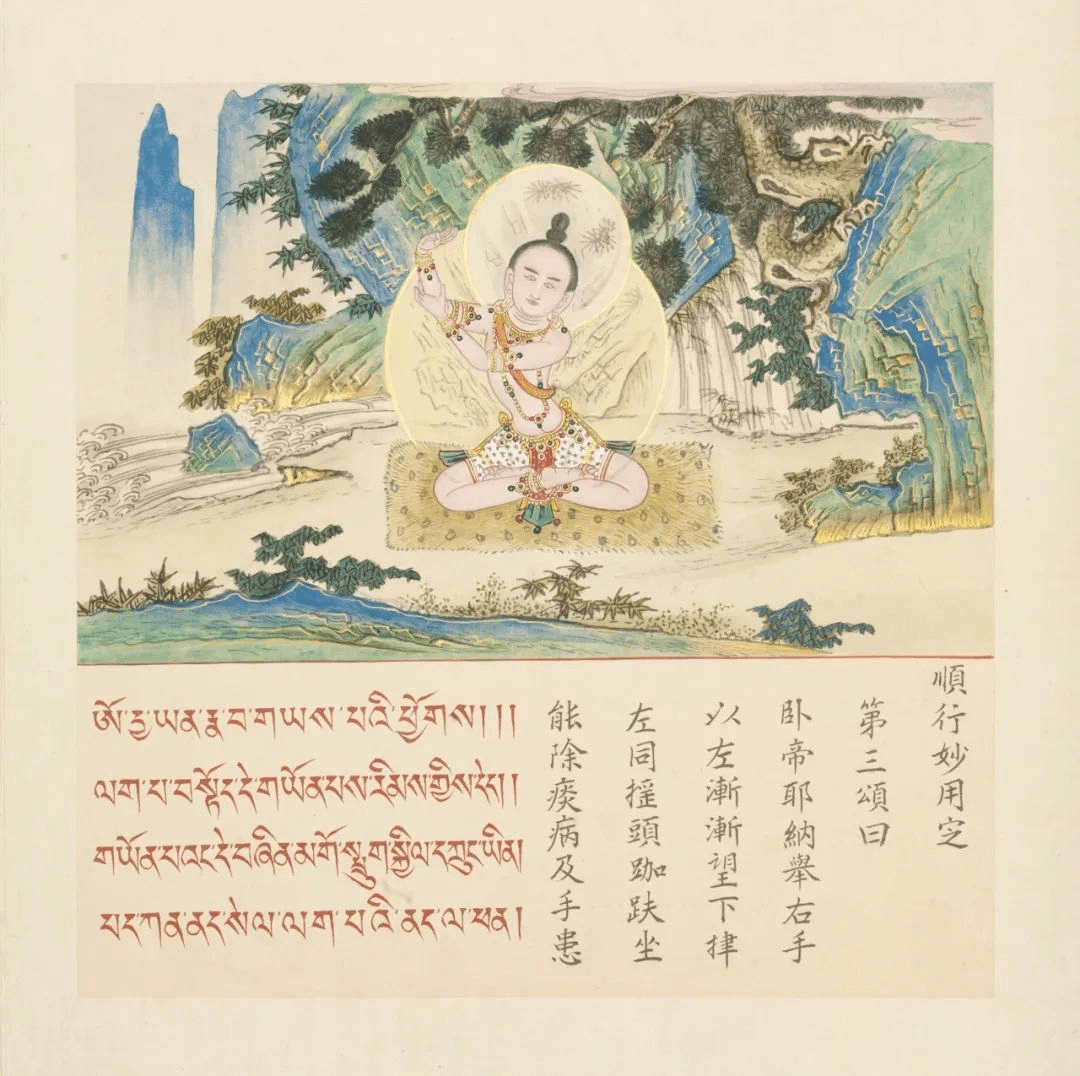 順行妙用㝎
第三頌曰
卧帝耶納舉右手
以左漸漸望下
左同揺頭跏趺坐
能除痰病及手患
ཨོ་དྱ་ཡན་རྣ་བ་གཡས་པའི་ཕྱོགས།།།
ལག་པ་བསྟོད་དེ་གཡོན་པས་རིམས་གྱིས་དེད།།
གཡོན་པའང་དེ་བཞིན་མགོ་སྤྲུག་སྐྱིལ་དཀྲུང་ཡིན།
པད་ཀན་ནད་སེལ་ལག་པའི་ནད་ལ་ཕན།